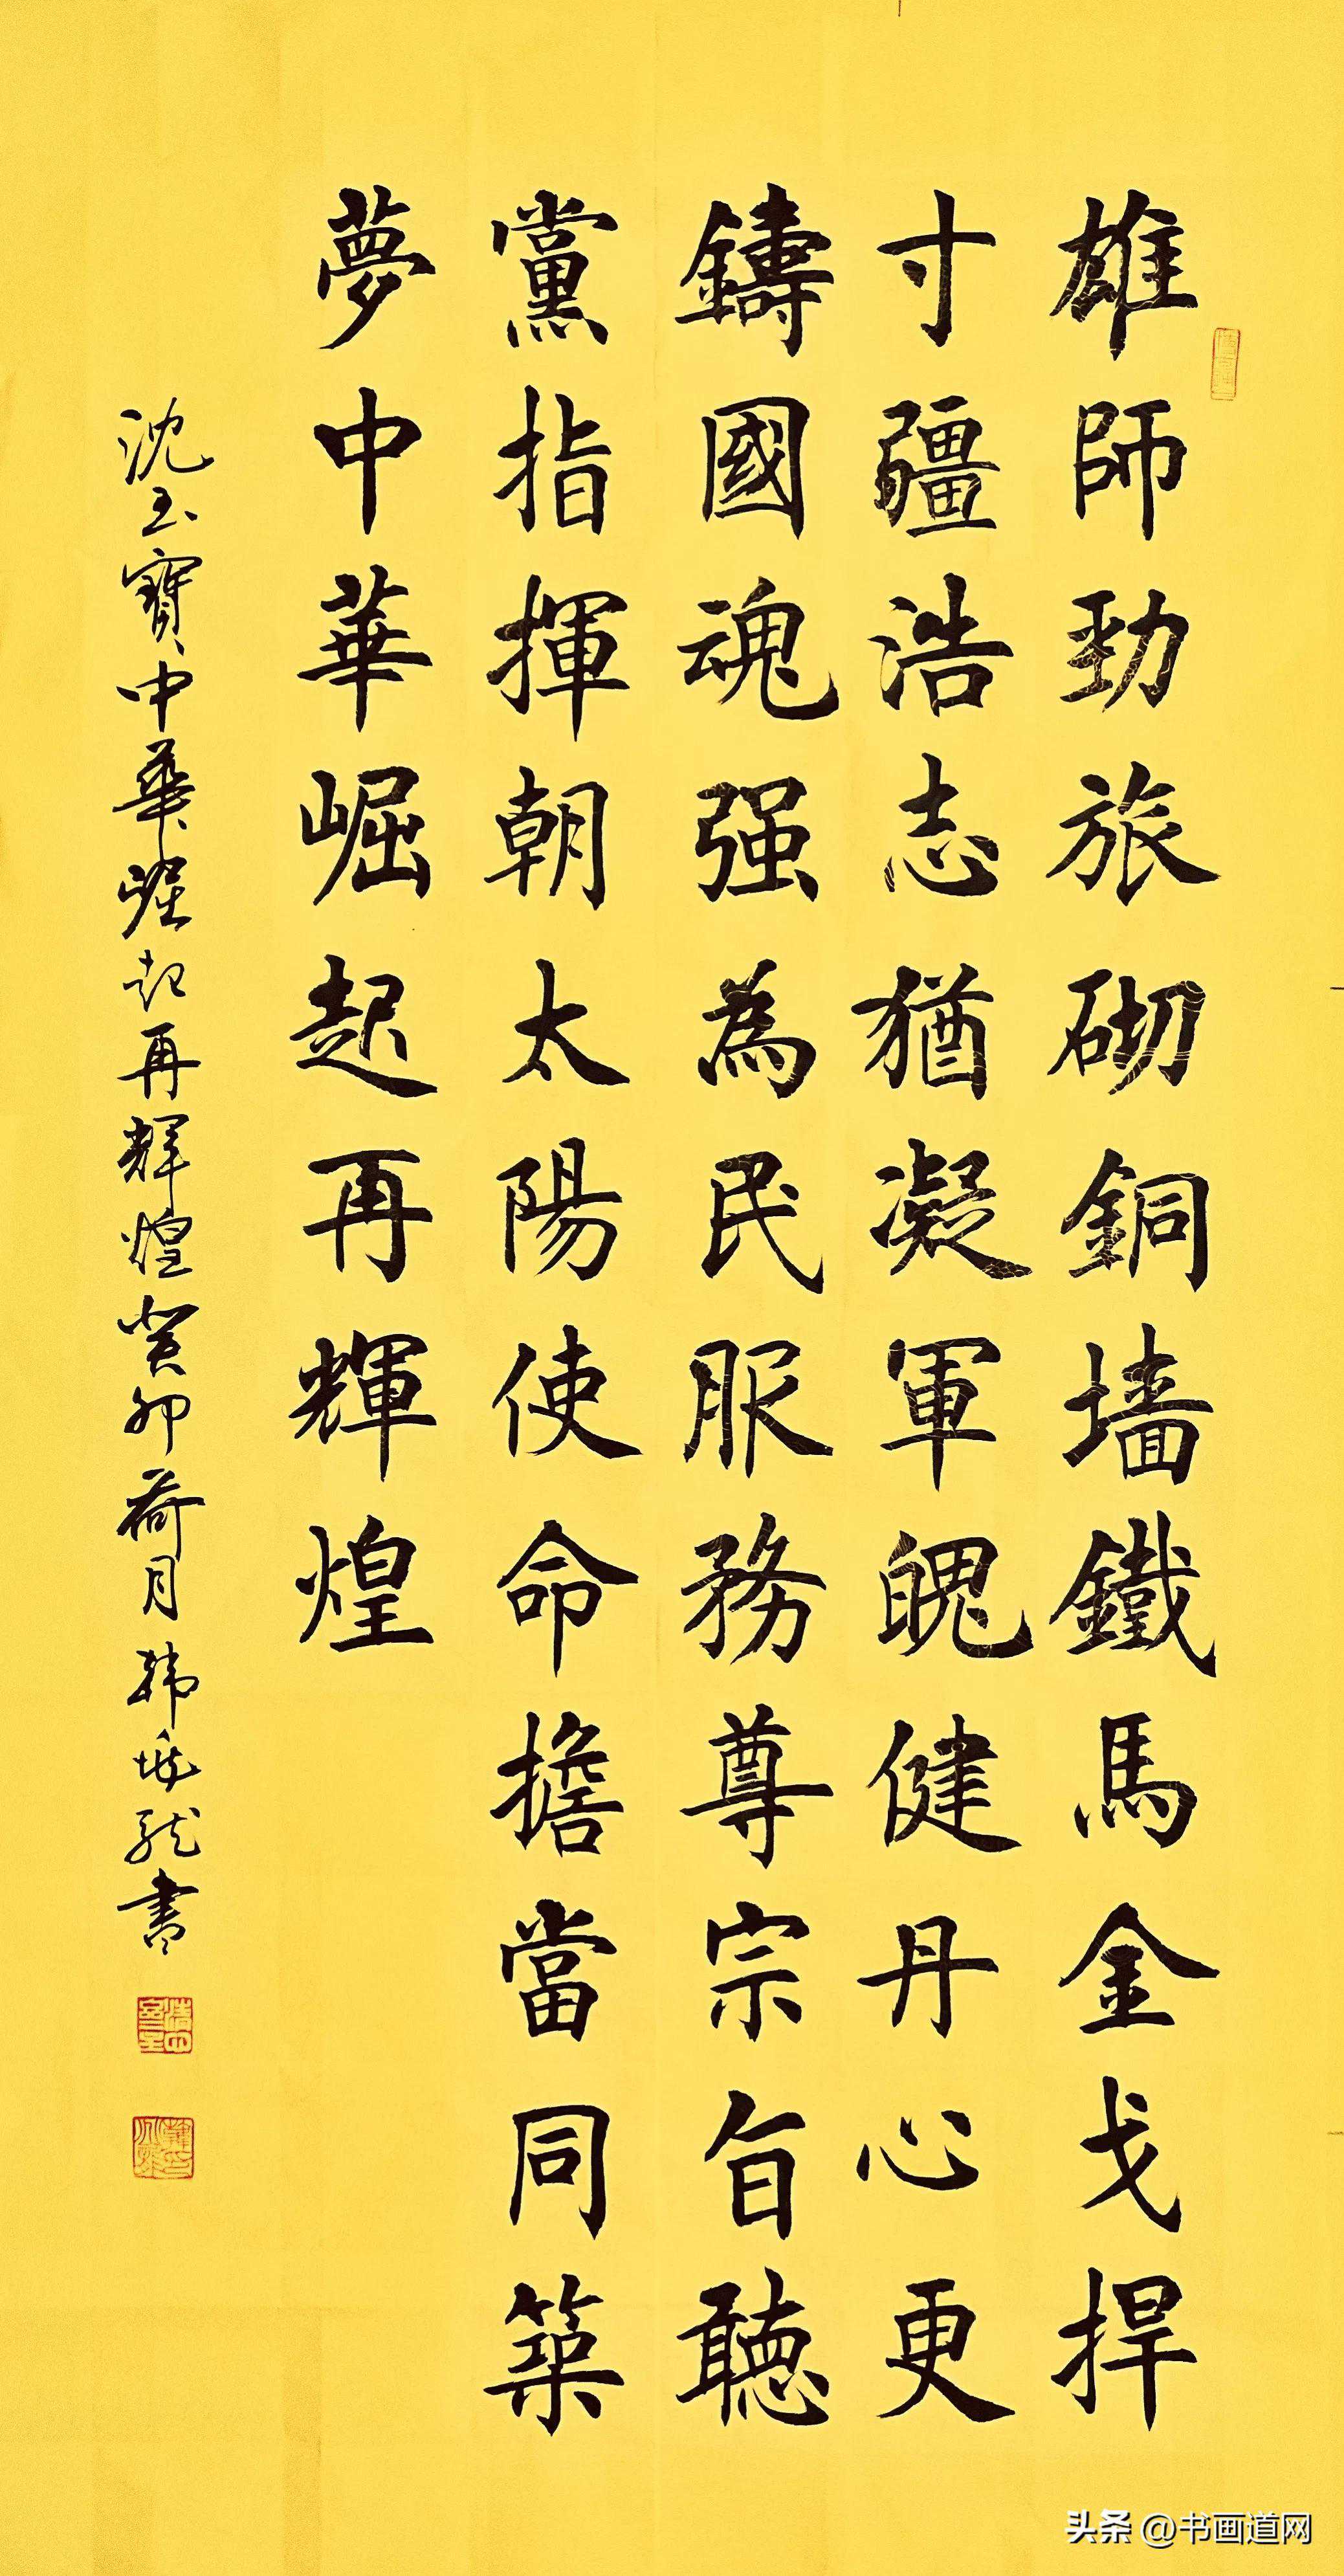 雄師勁旅砌銅墙鐵馬金戈捍
寸疆浩志猶凝軍魄健丹心更
鑄國魂强為民服務尊宗旨聽
黨指揮朝太陽使命擔當同築
夢中華崛起再輝煌
沈玉寶中華崛起再輝煌癸卯荷月韩 龙書
头条 @书画道网